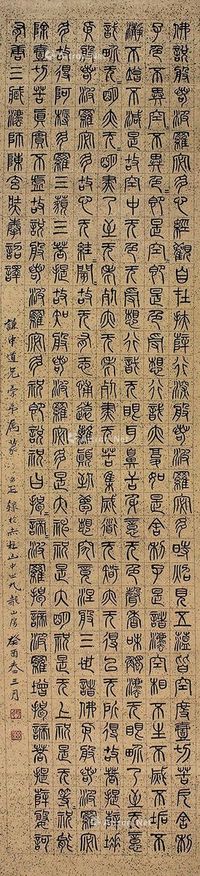 佛說般若波羅蜜多心經觀自在菩薩行深般若波羅蜜多時照見五蘊皆空度一切苦厄舍利
子色不異空空不異色色即是空空即是色受想行識亦復如是舍利子是諸法空相不生不滅不垢不
淨不增不減是故空中无色无受想行識无眼耳鼻舌身意无色聲香味觸法无眼界乃至无意
識界无无明亦无无明盡乃至无老死亦无老死盡无苦集滅道无智亦无得以无所得故菩提薩埵
依般若波羅蜜多故心无罣礙无罣礙故无有恐怖遠離顛倒夢想究竟涅槃三世諸佛依般若波羅蜜
多故得阿耨多羅三藐三菩提故知般若波羅蜜多是大神咒是大明咒是无上咒是无等等咒能
除一切苦真實不虛故說般若波羅蜜多咒即說咒曰揭諦揭諦波羅揭諦波羅僧揭諦菩提薩婆訶
有唐三藏法師陳玄奘奉詔譯
道兄 屬篆 癸酉春三月